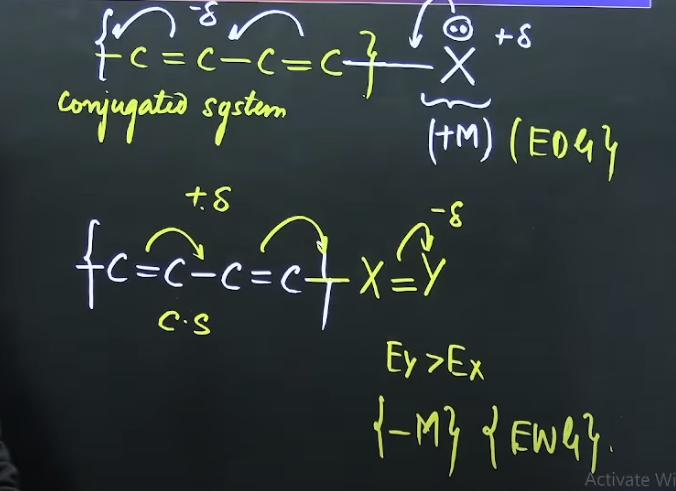 -δ
{ C = C - C = C } - X +δ
conjugated system
(+M) (EDG}
+δ
-δ
{ C = C - C = C } X = Y
C.S
Ey > Ex
{-M} {EWG}.
Activate Wi